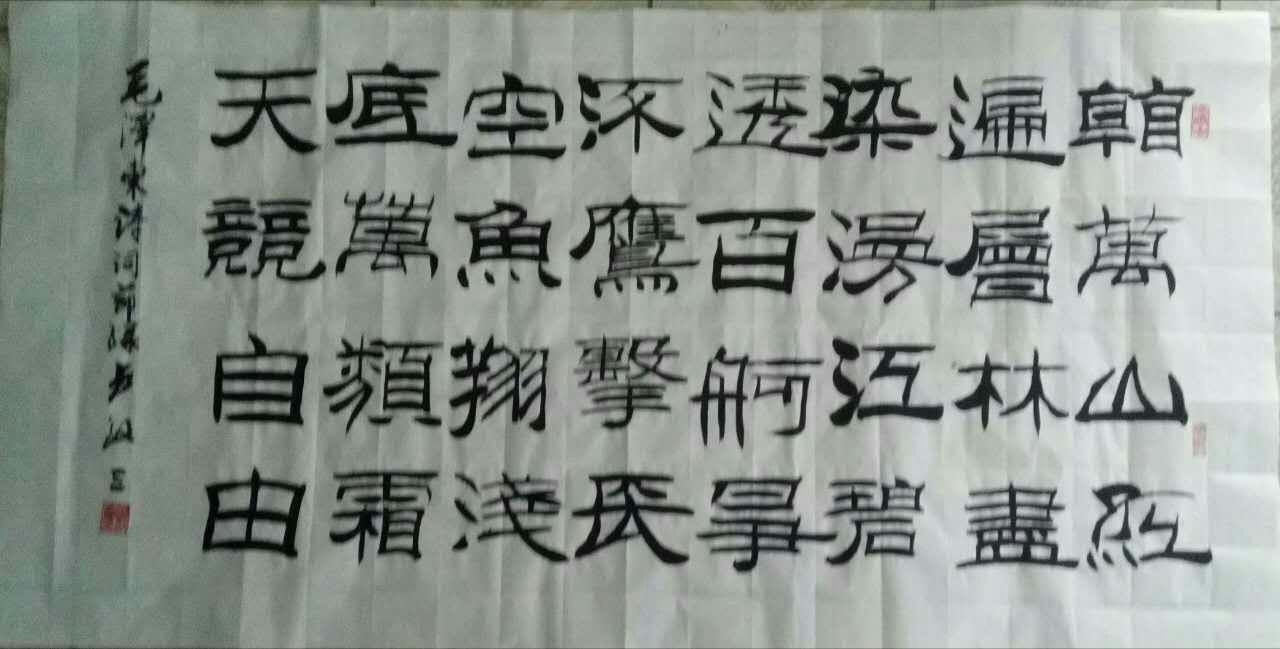 看萬山紅
遍層林盡
染漫江碧
透百舸爭
流鷹擊長
空魚翔淺
底萬類霜
天競自由
毛澤東詩詞